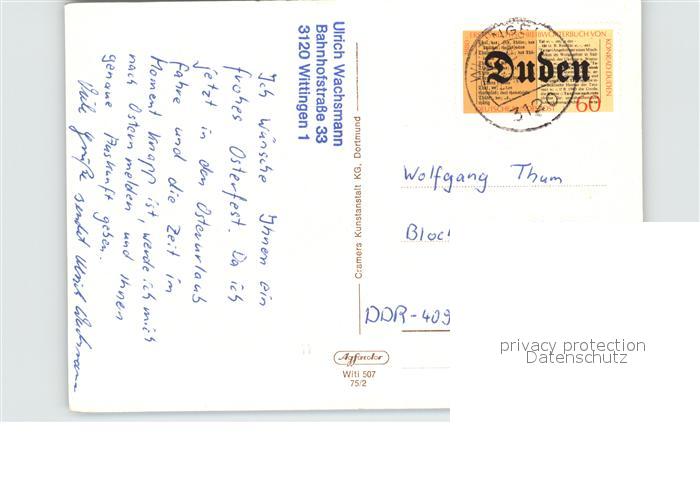 Ulrich Wachsmann
Bahnhofstraße 33
3120 Wittingen 1
Ich wünsche Ihnen ein
frohes Osterfest. Da ich
jetzt in den Osterurlaub
fahre und die Zeit im
Moment knapp ist, werde ich mich
nach Ostern melden und Ihnen
genaue Auskunft geben.
Viele Grüße sendet Ulrich Wachsmann
Cramers Kunstanstalt KG, Dortmund
Agfacolor
Witi 507
75/2
WÖRTERBUCH VON
KONRAD DUDEN
Duden
60
3120
Wolfgang Thum
Bloc
DDR-409
privacy protection
Datenschutz